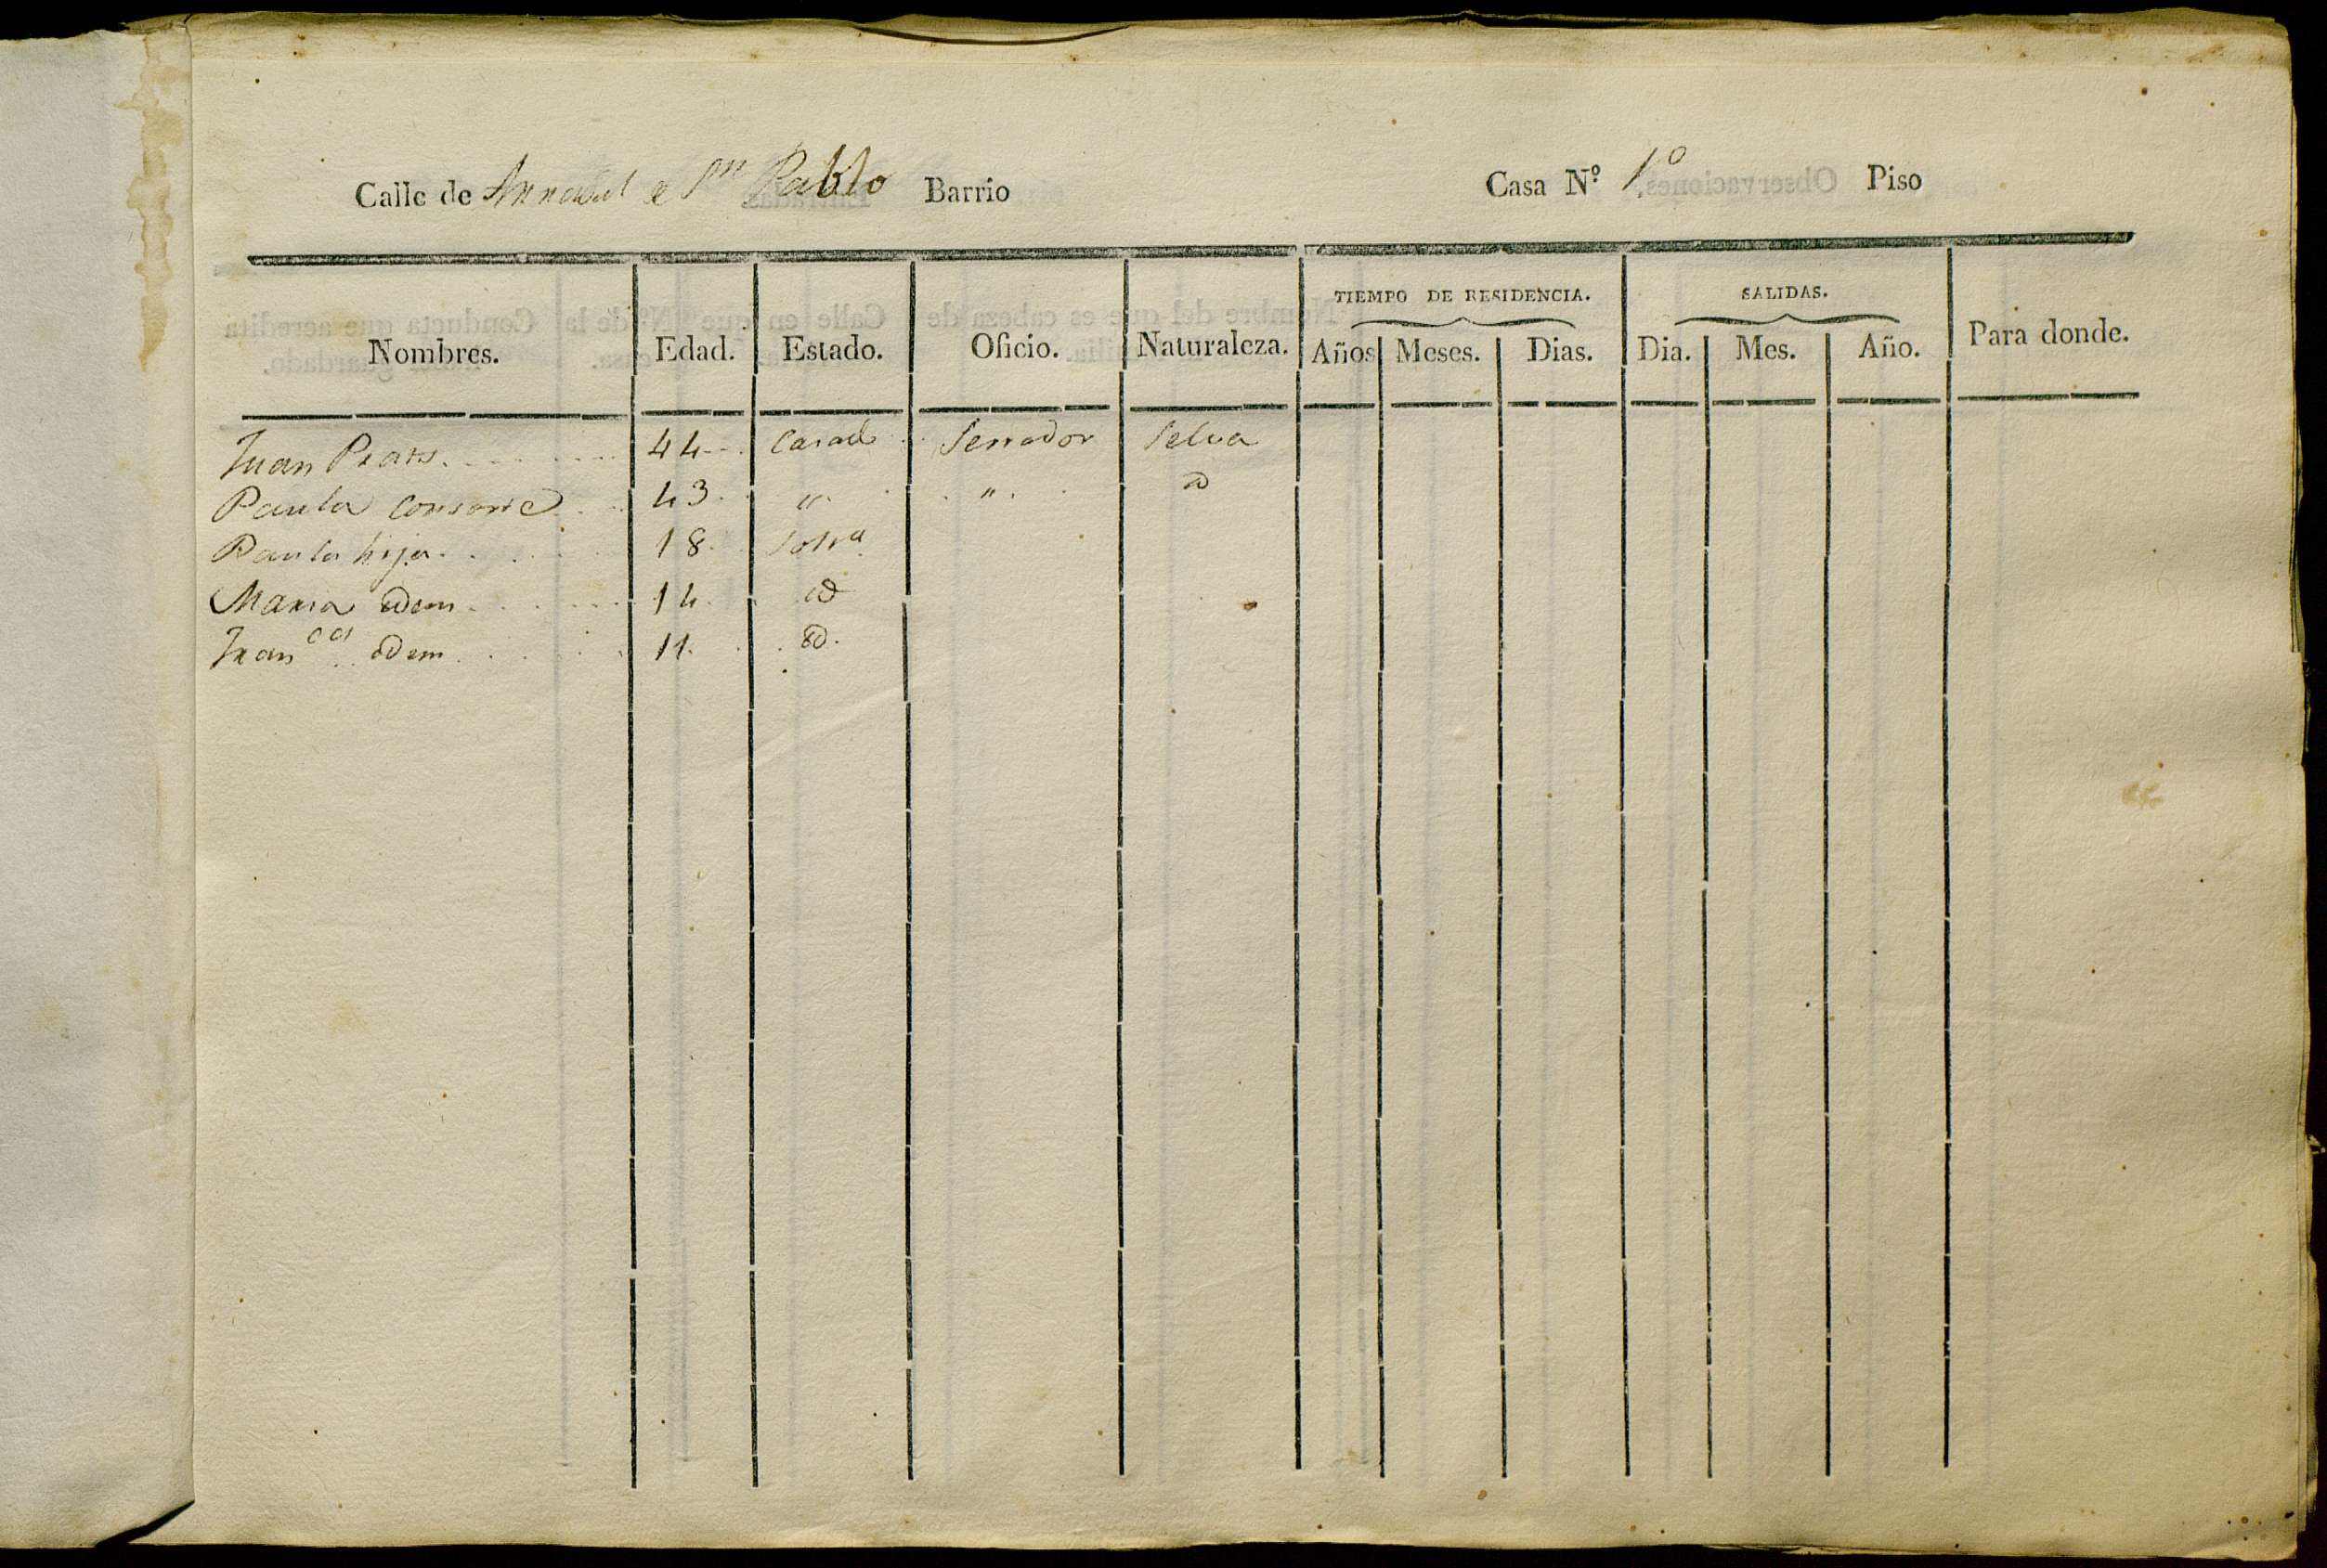 Calle de Arrabal de Sn Pablo Barrio Casa Nº 1º Piso
Nombres. Edad. Estado. Oficio. Naturaleza. TIEMPO DE RESIDENCIA. Años Meses. Dias. SALIDAS. Dia. Mes. Año. Para donde.
Juan Prats 44 Casado Serrador Selva
Paula consorte 43 " " id
Paula hija 18 Soltra
Maria idem 14 id
Franca idem 11 id